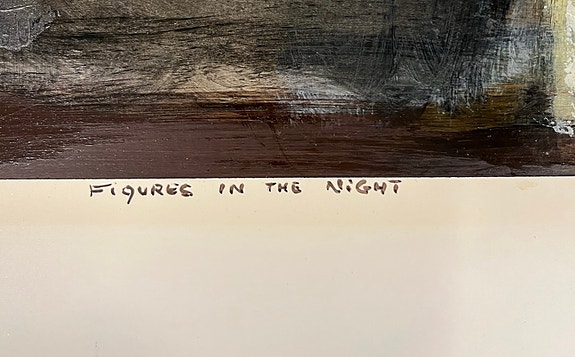 FiGURES IN THE NiGHT